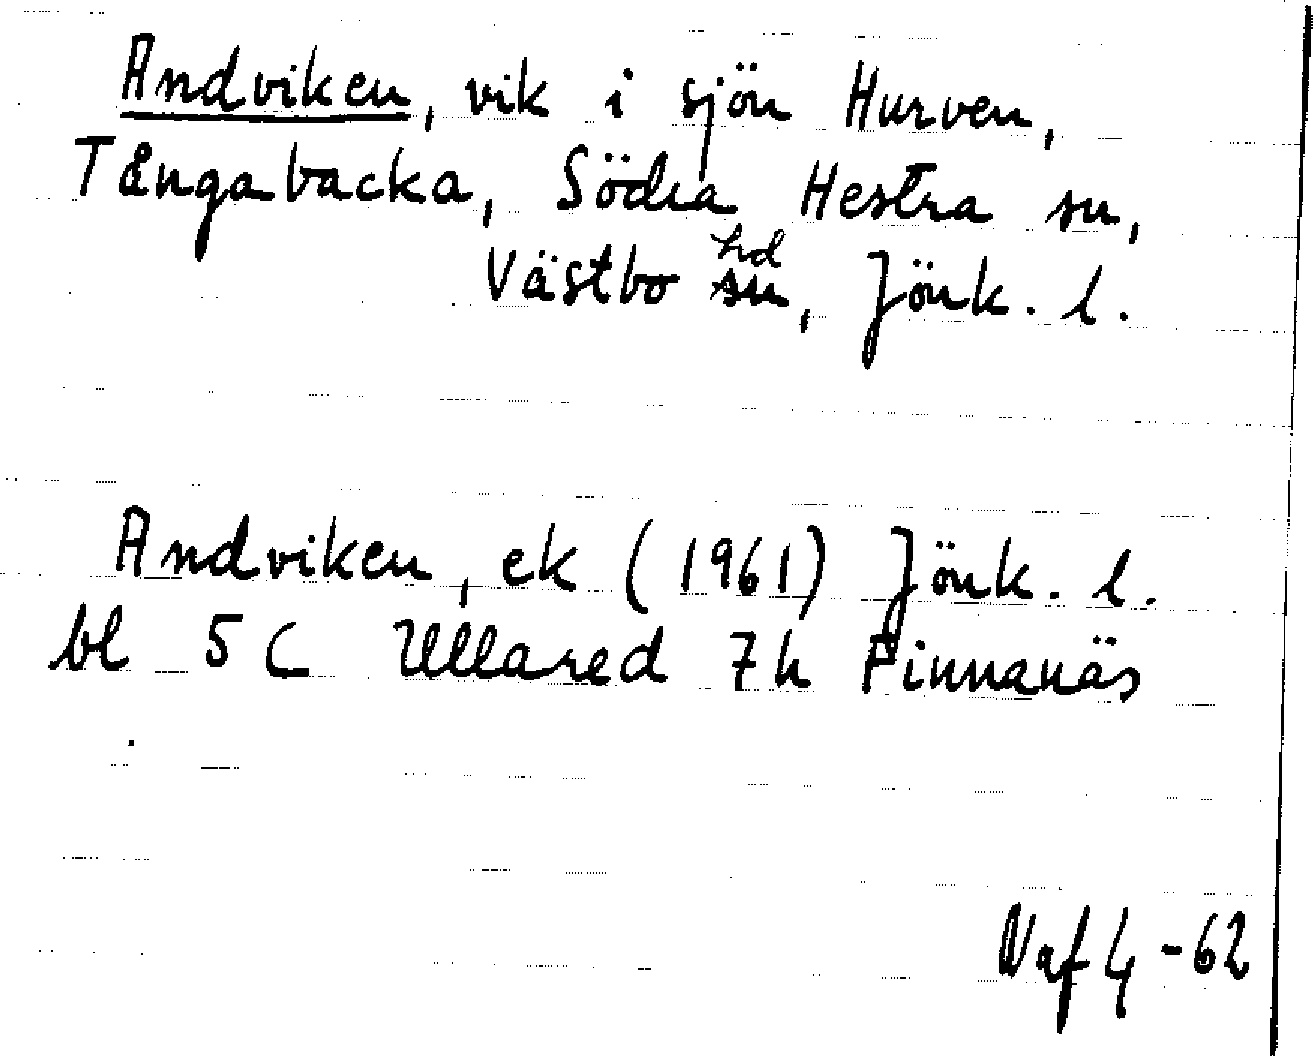 Andviken, vik i sjön Hurven,
Tångabacka, Södra Hestra sn,
Västbo hd, Jönk. l.
Andviken, ek (1961) Jönk. l.
bl 5 C Ullared 7h Finnanäs
Vaf 4 - 62